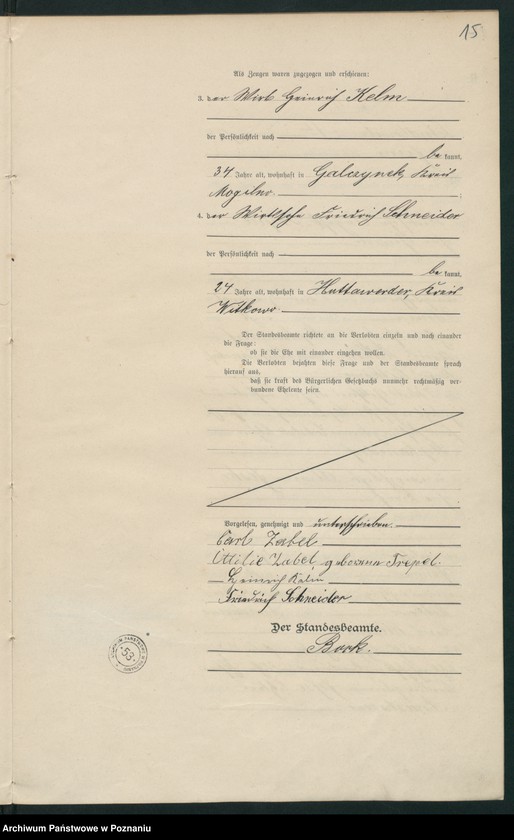 15
Als Zeugen waren zugezogen und erschienen:
3. der Wirt Heinrich Kelm
der Persönlichkeit nach
be kannt,
34 Jahre alt, wohnhaft in Galczynek, Kreis
Mogilno.
4. der Wirtssohn Friedrich Schneider
der Persönlichkeit nach
be kannt,
24 Jahre alt, wohnhaft in Huttawerder, Kreis
Witkowo.
Der Standesbeamte richtete an die Verlobten einzeln und nach einander
die Frage:
ob sie die Ehe mit einander eingehen wollen.
Die Verlobten bejahten diese Frage und der Standesbeamte sprach
hierauf aus,
daß sie kraft des Bürgerlichen Gesetzbuchs nunmehr rechtmäßig ver-
bundene Eheleute seien.
Vorgelesen, genehmigt und unterschrieben.
Carl Zabel
Ottilie Zabel geborene Trepel.
Heinrich Kelm
Friedrich Schneider
Der Standesbeamte.
Bork.
53
Archiwum Państwowe w Poznaniu